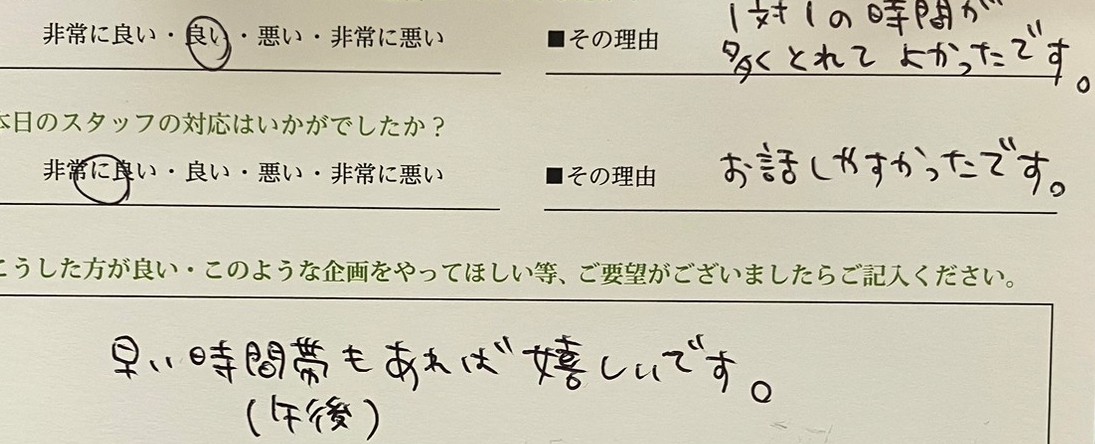 非常に良い・良い・悪い・非常に悪い ■その理由 1対1の時間が
多くとれて よかったです。
本日のスタッフの対応はいかがでしたか？
非常に良い・良い・悪い・非常に悪い ■その理由 お話しやすかったです。
こうした方が良い・このような企画をやってほしい等、ご要望がございましたらご記入ください。
早い時間帯もあれば嬉しいです。
(午後)